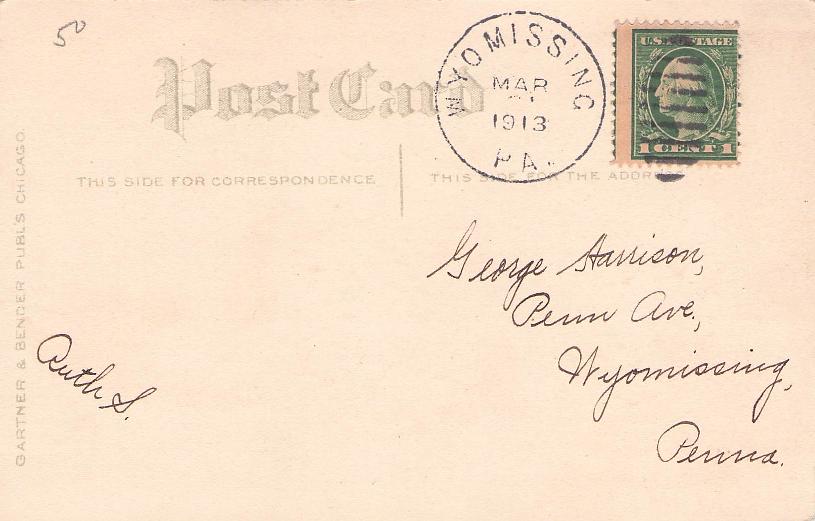 50
Post Card
WYOMISSING
MAR
1913
PA.
U.S. POSTAGE
1 CENT 1
THIS SIDE FOR CORRESPONDENCE
THIS SIDE FOR THE ADDRESS
GARTNER & BENDER PUBL'S CHICAGO.
George Harrison,
Penn Ave.,
Wyomissing,
Penna.
Ruth S.